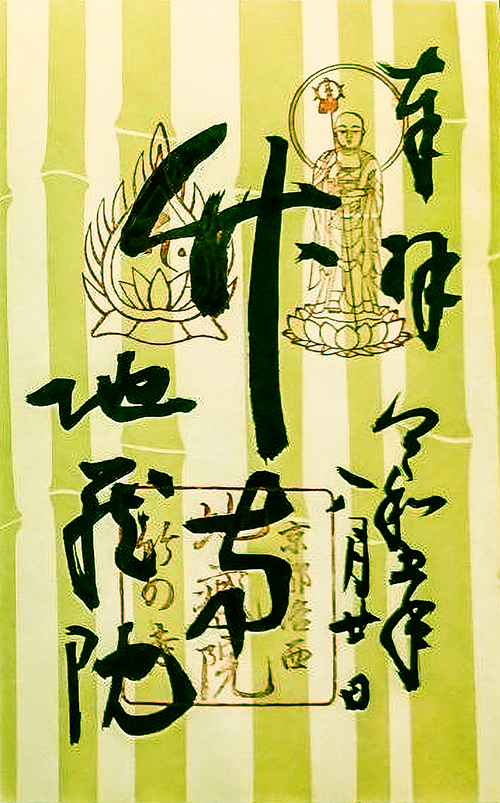 奉拝
令和五年
八月廿日
竹寺
地蔵院
京都洛西
地蔵院
竹の寺